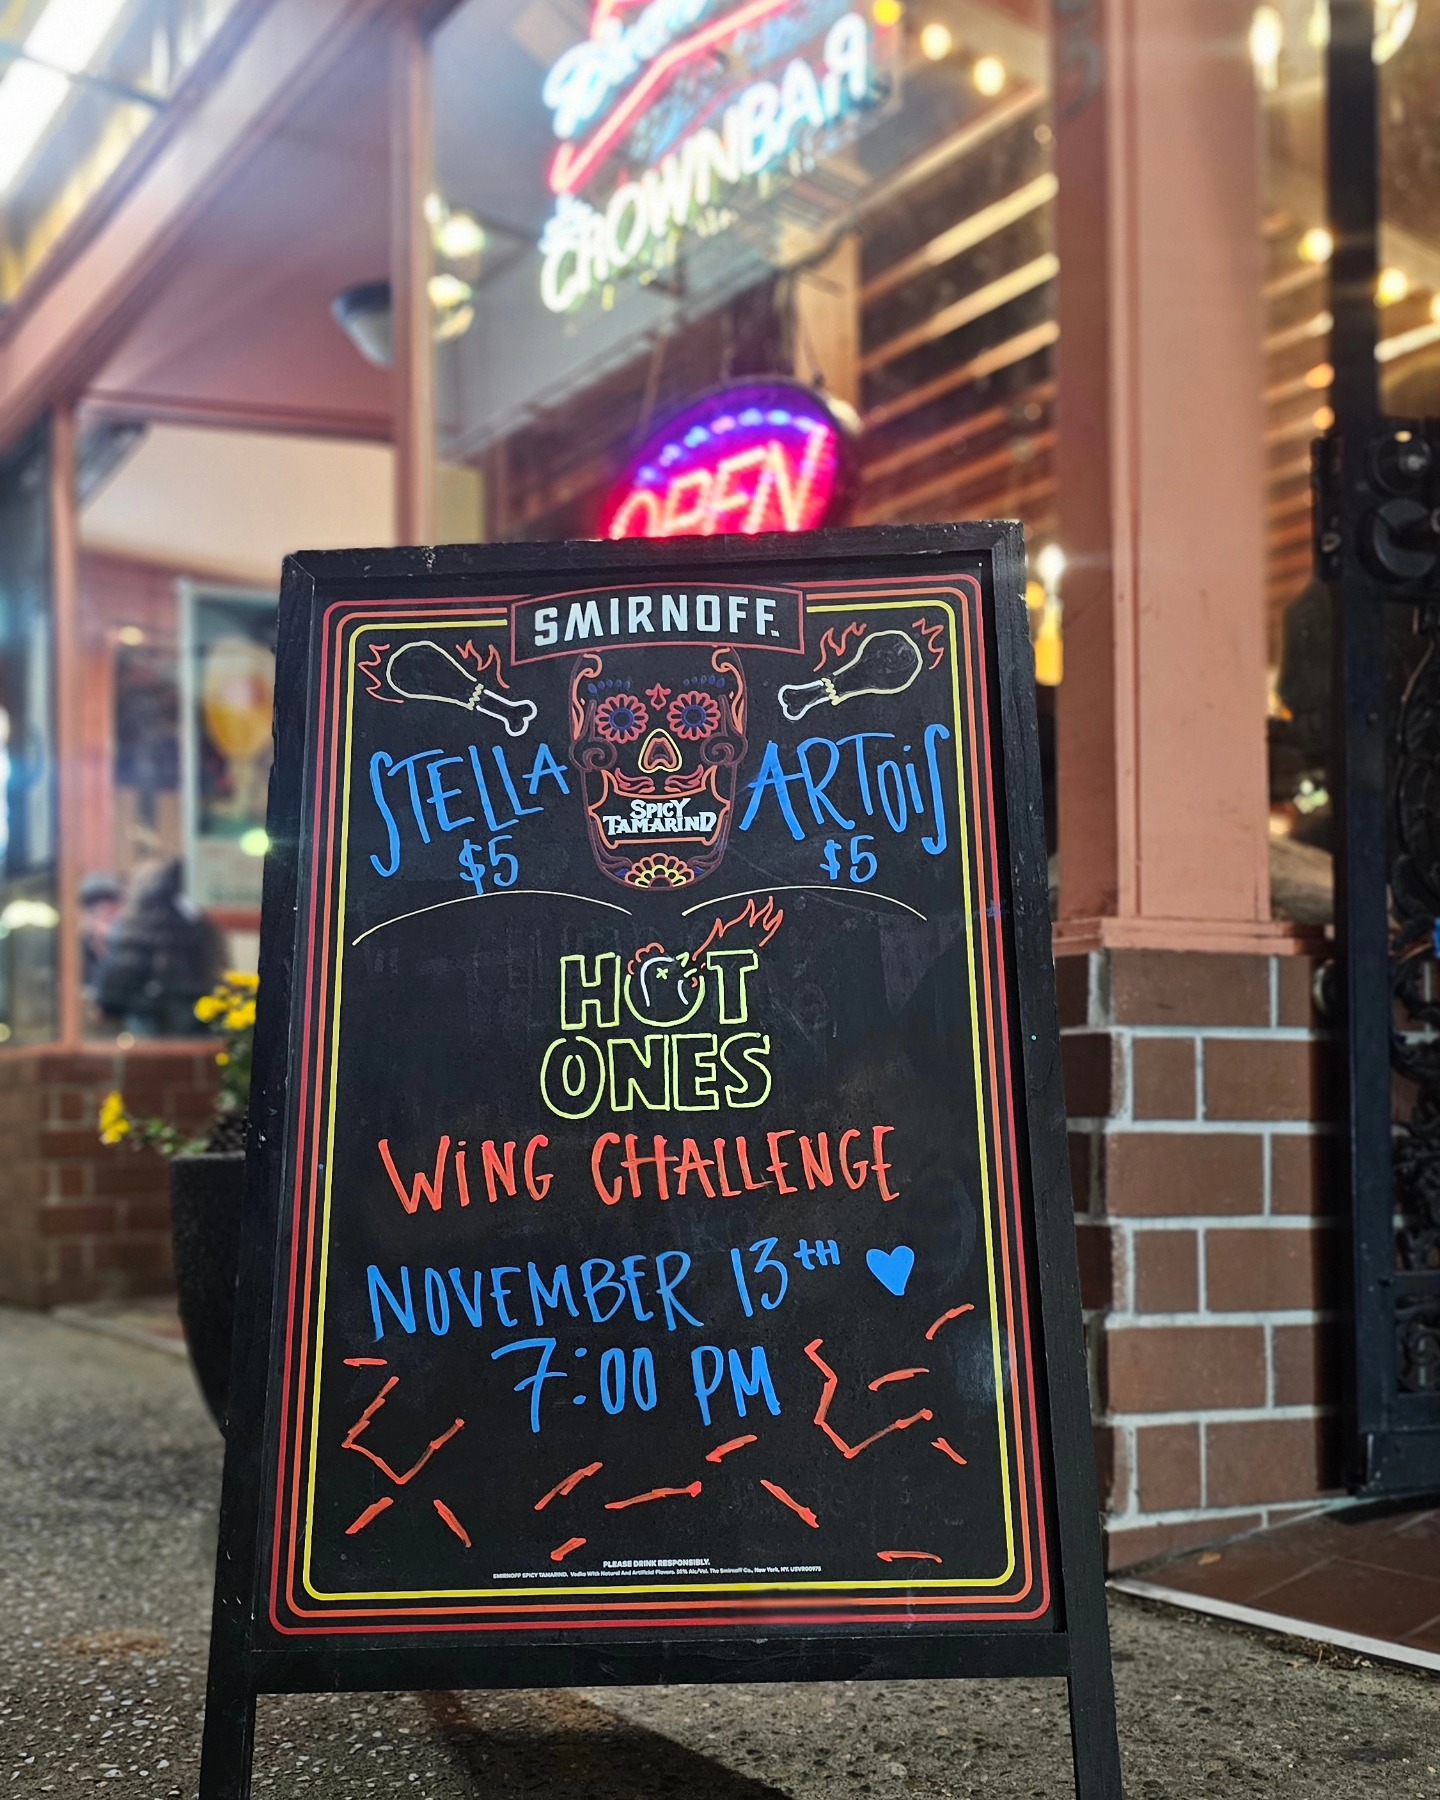 CROWN BAR
OPEN
SMIRNOFF
STELLA ARTOiS
SPICY
TAMARIND
$5 $5
HOT
ONES
WiNG CHALLENGE
NOVEMBER 13TH
7:00 PM
PLEASE DRINK RESPONSIBLY.
SMIRNOFF SPICY TAMARIND. Vodka With Natural And Artificial Flavors. 35% Alc/Vol. The Smirnoff Co., New York, NY.